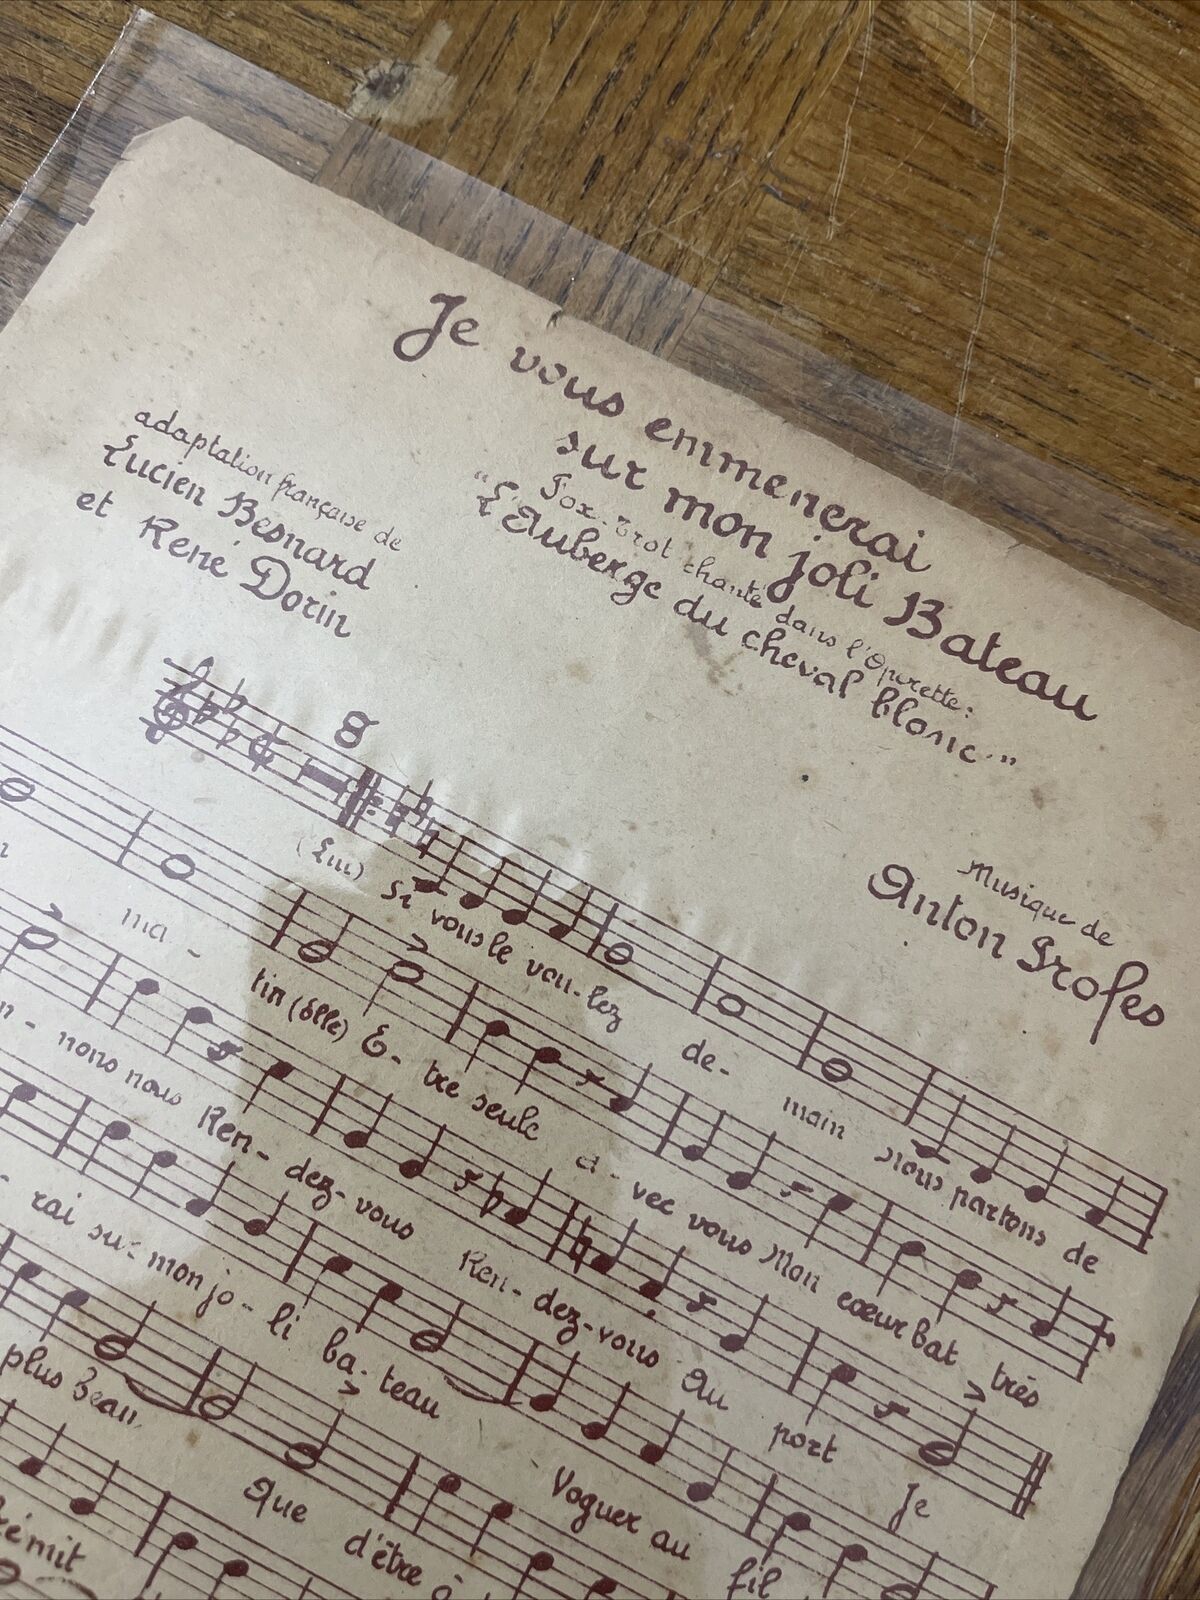 Je vous emmenerai
sur mon joli Bateau
Fox-Trot chanté dans l'Opérette:
"L'Auberge du cheval blanc"
adaptation française de
Lucien Besnard
et René Dorin
Musique de
Anton Profes
8
(Lui) Si vous le vou-lez de- main nous partons de
ma - tin (Elle) E- tre seule a- vec vous Mon cœur bat très
nons nous Ren- dez-vous Ren- dez-vous Au port Je
rai sur mon jo- li ba- teau Voguer au fil
plus beau Que d'être à